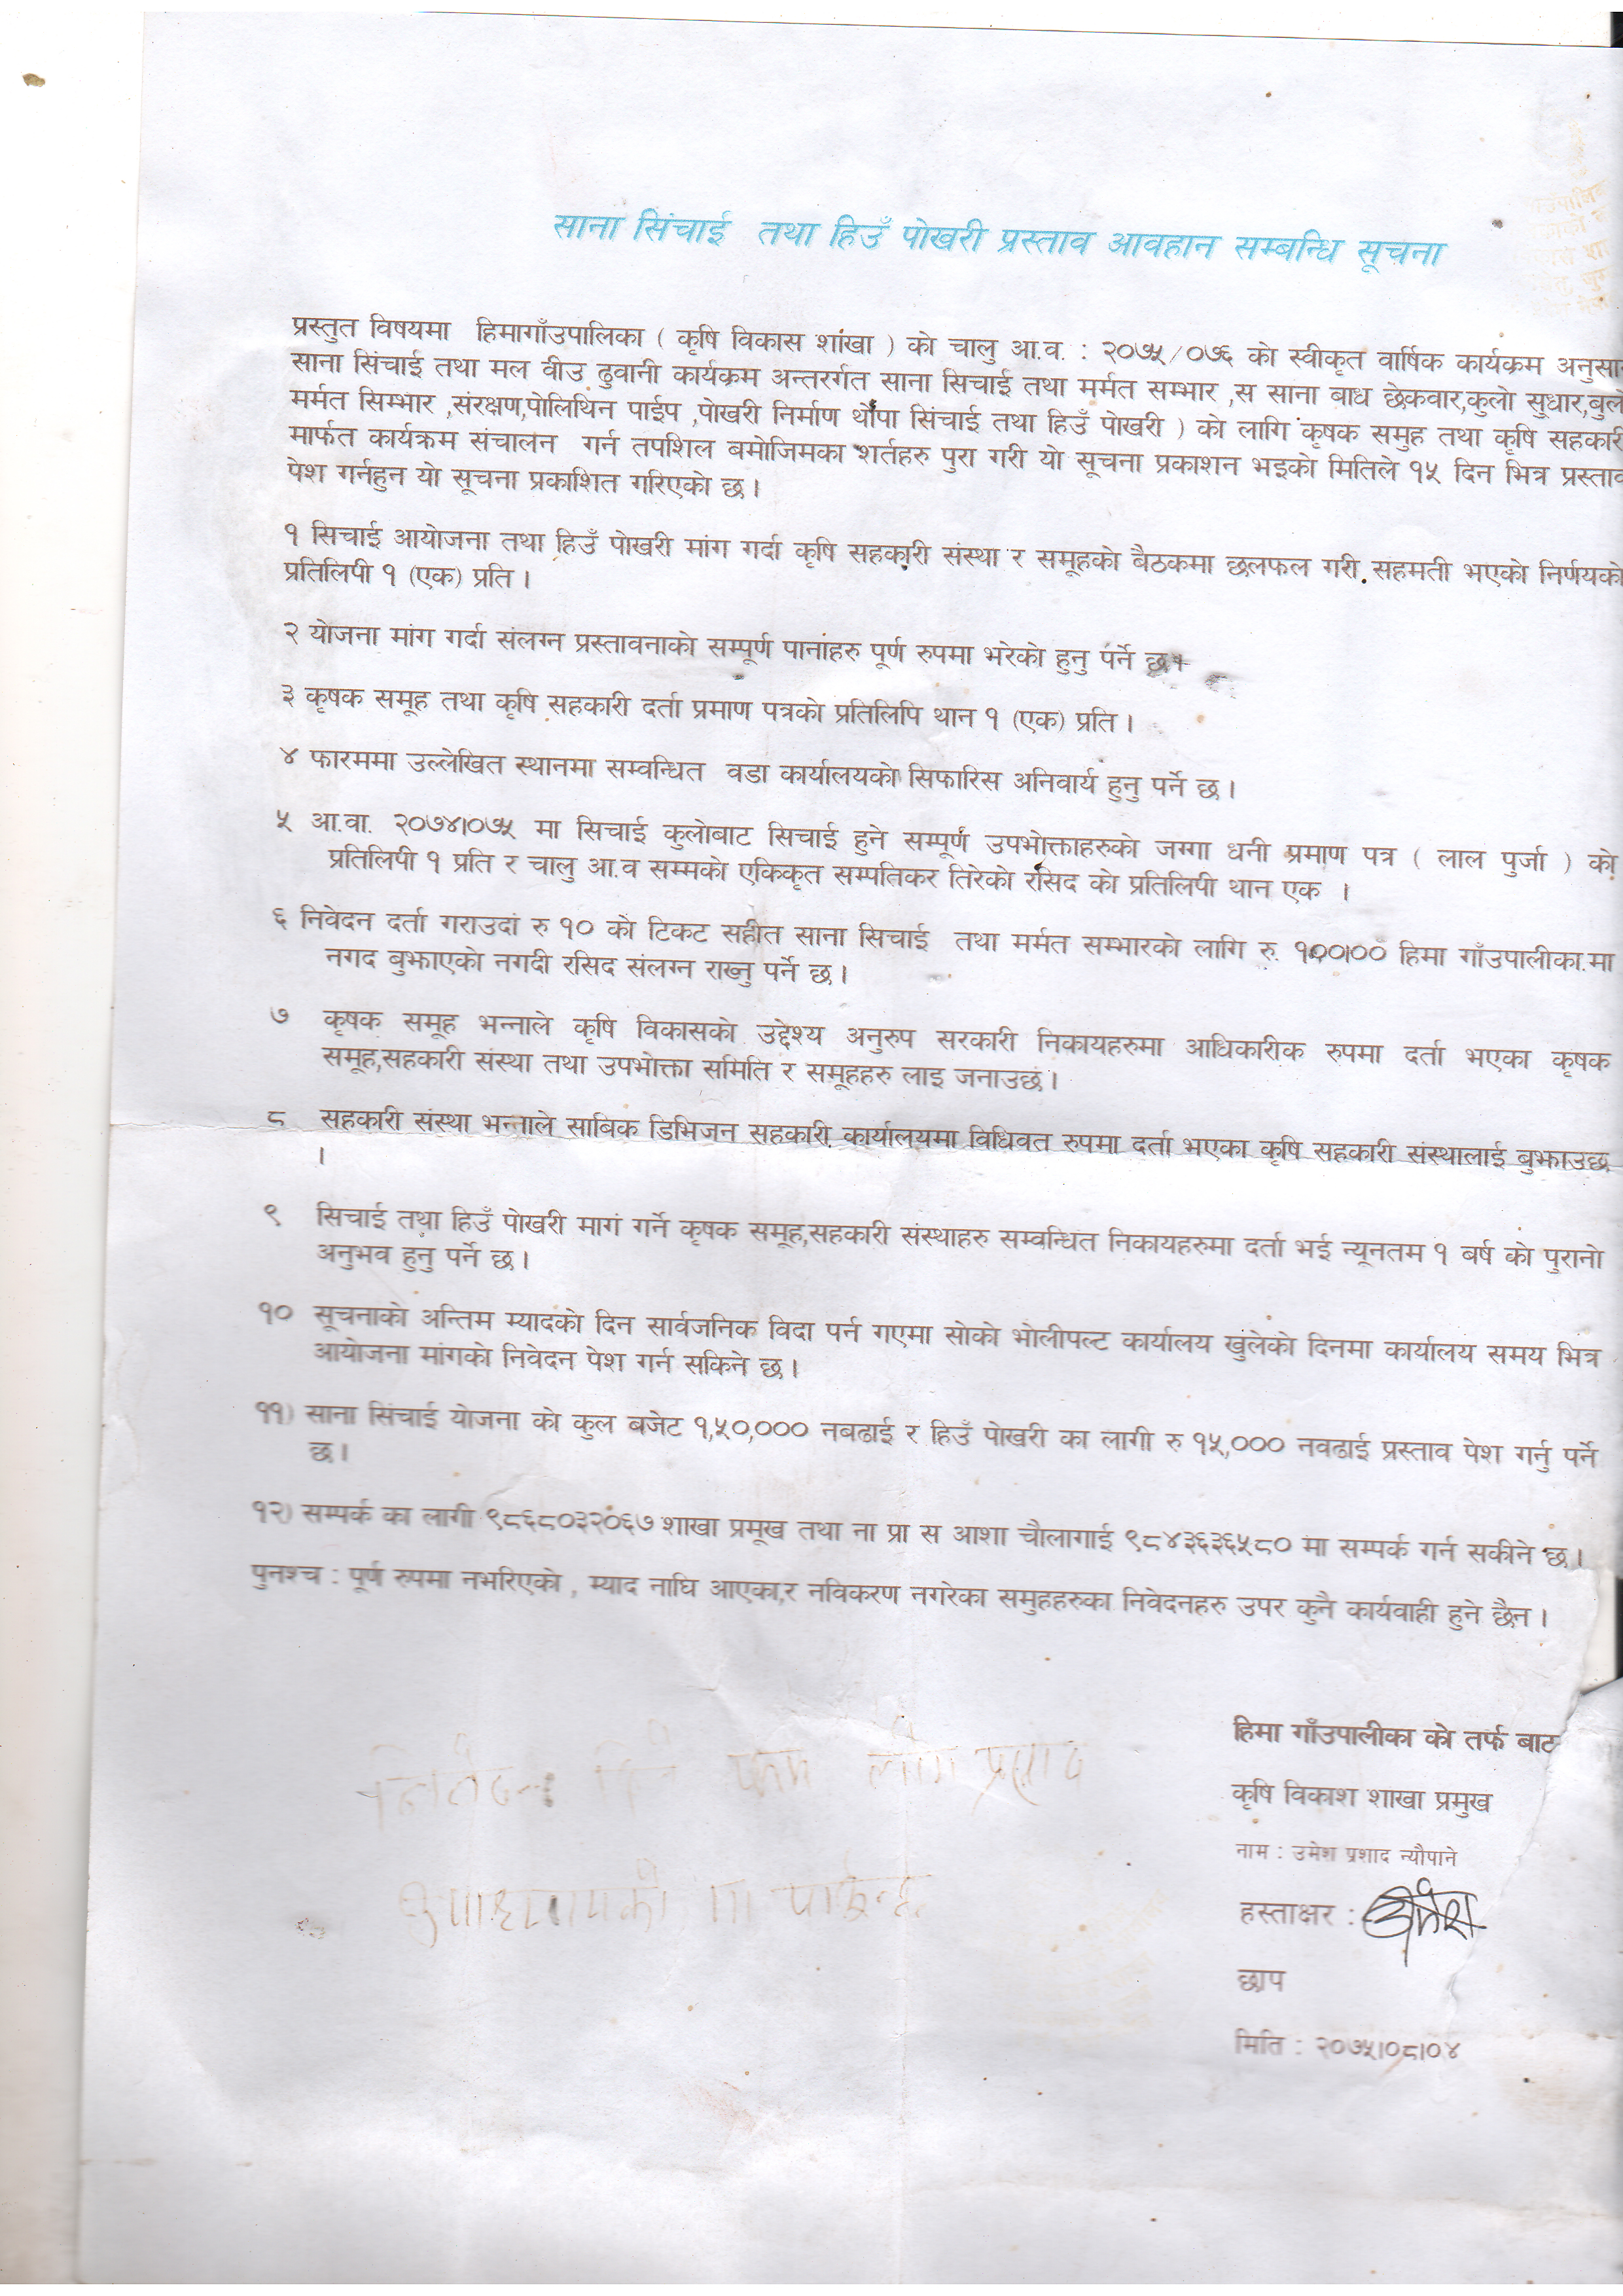 साना सिंचाई तथा हिउँ पोखरी प्रस्ताव आवहान सम्बन्धि सूचना
प्रस्तुत विषयमा हिमागाँउपालिका ( कृषि विकास शांखा ) को चालु आ.व. : २०७५/०७६ को स्वीकृत वार्षिक कार्यक्रम अनुसा
साना सिंचाई तथा मल वीउ ढुवानी कार्यक्रम अन्तरर्गत साना सिचाई तथा मर्मत सम्भार ,स साना बाध छेकवार,कुलो सुधार,
मर्मत सिम्भार ,संरक्षण,पोलिथिन पाईप ,पोखरी निर्माण थोपा सिंचाई तथा हिउँ पोखरी ) को लागि कृषक समुह तथा कृषि सहकारी
मार्फत कार्यक्रम संचालन गर्न तपशिल बमोजिमका शर्तहरु पुरा गरी यो सूचना प्रकाशन भइको मितिले १५ दिन भित्र प्रस्ताव
पेश गर्नहुन यो सूचना प्रकाशित गरिएको छ ।
१ सिचाई आयोजना तथा हिउँ पोखरी मांग गर्दा कृषि सहकारी संस्था र समूहको बैठकमा छलफल गरी सहमती भएको निर्णयको
प्रतिलिपी १ (एक) प्रति ।
२ योजना मांग गर्दा संलग्न प्रस्तावनाको सम्पूर्ण पानाहरु पूर्ण रुपमा भरेको हुनु पर्ने छ।
३ कृषक समूह तथा कृषि सहकारी दर्ता प्रमाण पत्रको प्रतिलिपि थान १ (एक) प्रति ।
४ फारममा उल्लेखित स्थानमा सम्वन्धित वडा कार्यालयको सिफारिस अनिवार्य हुनु पर्ने छ ।
५ आ.वा. २०७४।०७५ मा सिचाई कुलोबाट सिचाई हुने सम्पूर्ण उपभोक्ताहरुको जग्गा धनी प्रमाण पत्र ( लाल पुर्जा ) को
प्रतिलिपी १ प्रति र चालु आ.व सम्मको एकिकृत सम्पतिकर तिरेको रसिद को प्रतिलिपी थान एक ।
६ निवेदन दर्ता गराउदां रु १० को टिकट सहीत साना सिचाई तथा मर्मत सम्भारको लागि रु. १००।०० हिमा गाँउपालीका.मा
नगद बुझाएको नगदी रसिद संलग्न राख्नु पर्ने छ ।
७ कृषक समूह भन्नाले कृषि विकासको उद्देश्य अनुरुप सरकारी निकायहरुमा आधिकारीक रुपमा दर्ता भएका कृषक
समूह,सहकारी संस्था तथा उपभोक्ता समिति र समूहहरु लाइ जनाउछं ।
८ सहकारी संस्था भन्नाले साबिक डिभिजन सहकारी कार्यालयमा विधिवत रुपमा दर्ता भएका कृषि सहकारी संस्थालाई बुझाउछ
।
९ सिचाई तथा हिउँ पोखरी मागं गर्ने कृषक समूह,सहकारी संस्थाहरु सम्वन्धित निकायहरुमा दर्ता भई न्यूनतम १ बर्ष को पुरानो
अनुभव हुनु पर्ने छ ।
१० सूचनाको अन्तिम म्यादको दिन सार्वजनिक विदा पर्न गएमा सोको भोलीपल्ट कार्यालय खुलेको दिनमा कार्यालय समय भित्र
आयोजना मांगको निवेदन पेश गर्न सकिने छ ।
११) साना सिंचाई योजना को कुल बजेट १,५०,००० नबढाई र हिउँ पोखरी का लागी रु १५,००० नवढाई प्रस्ताव पेश गर्नु पर्ने
छ ।
१२) सम्पर्क का लागी ९८६८०३२०६७ शाखा प्रमूख तथा ना प्रा स आशा चौलागाई ९८४३६३६५८० मा सम्पर्क गर्न सकीने छ ।
पुनश्च : पूर्ण रुपमा नभरिएको , म्याद नाघि आएका,र नविकरण नगरेका समुहहरुका निवेदनहरु उपर कुनै कार्यवाही हुने छैन ।
हिमा गाँउपालीका को तर्फ बाट
कृषि विकाश शाखा प्रमुख
नाम : उमेश प्रशाद न्यौपाने
हस्ताक्षर : उमेश
छाप
मिति : २०७५।०८।०४